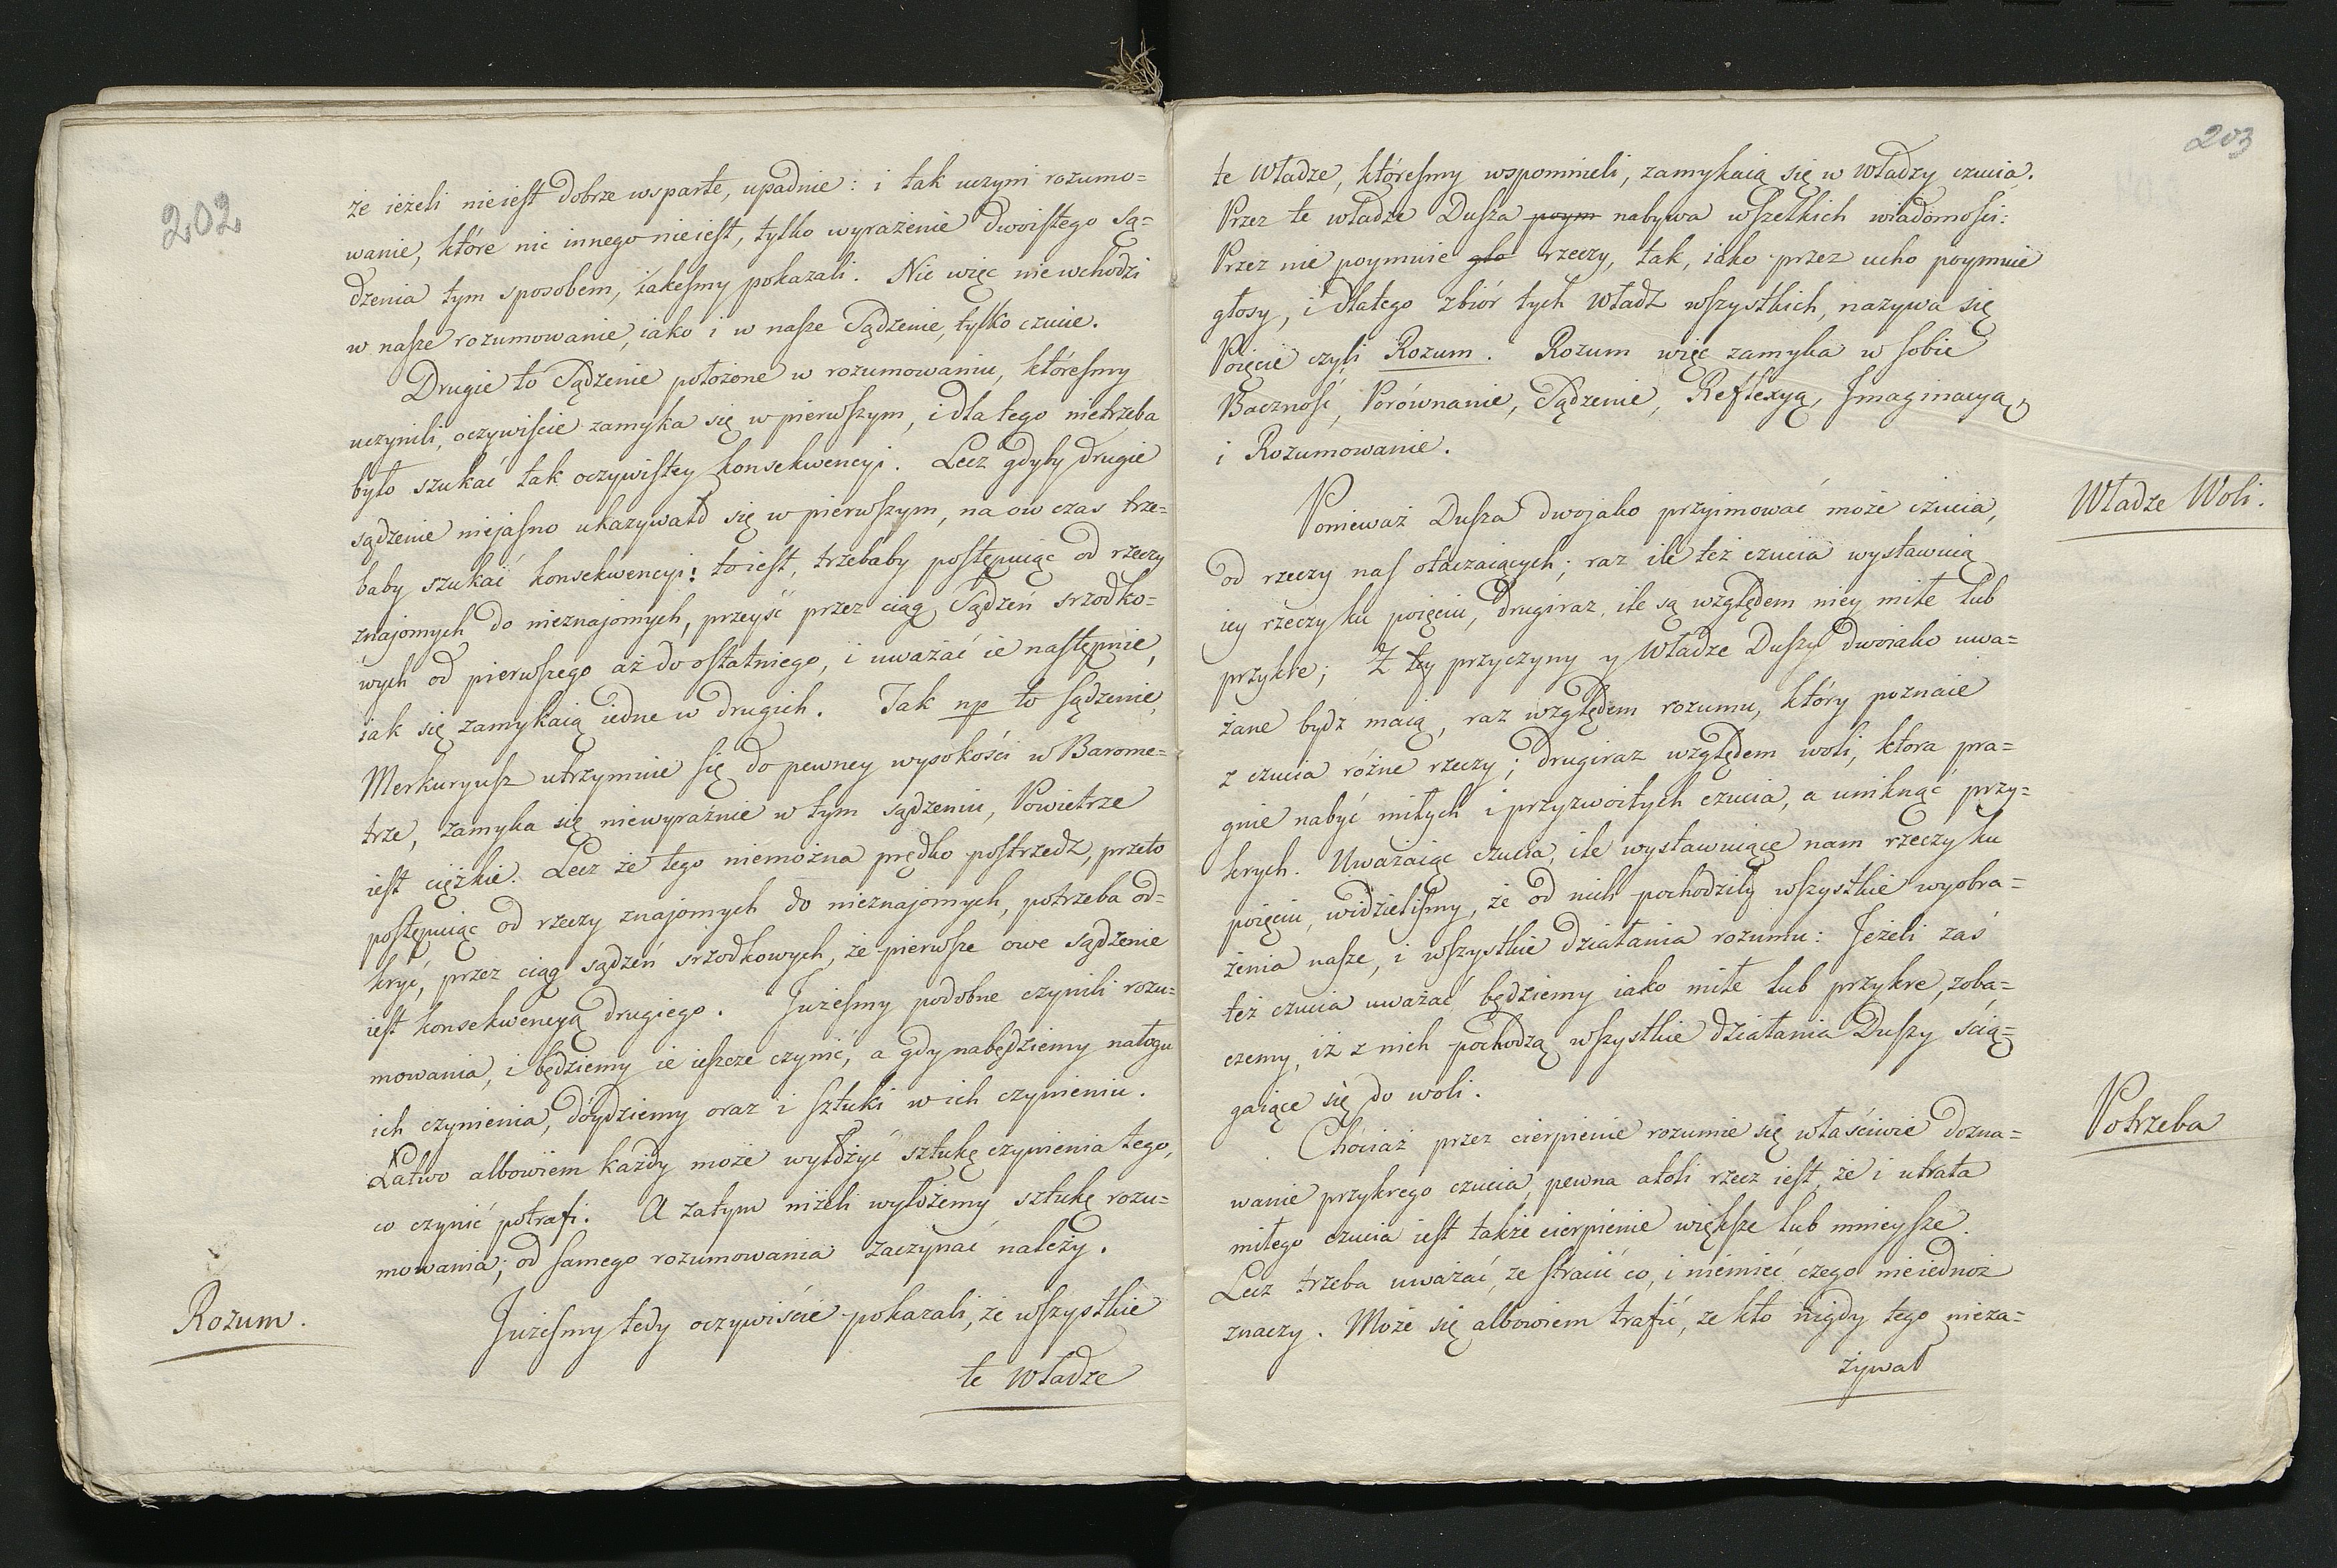 202
że ieżeli nieiest dobrze wsparte, upadnie: i tak uczyni rozumo=
wanie, które nic innego nieiest, tylko wyrażenie dwoistego są=
dzenia tym sposobem, iakeśmy pokazali. Nic więc niewchodzi
w nasze rozumowanie, iako i w nasze Sądzenie, tylko czucie.
Drugie to Sądzenie położone w rozumowaniu, któreśmy
uczynili, oczywiście zamyka się w pierwszym, i dla tego nietrzeba
było szukać tak oczywistey konsekwencyi. Lecz gdyby drugie
sądzenie niejasno ukazywało się w pierwszym, na ow czas trze=
baby szukać konsekwencyi: to iest, trzebaby postępuiąc od rzeczy
znajomych do nieznajomych, przeyść przez ciąg Sądzeń srzodko=
wych od pierwszego aż do ostatniego, i uważać ie następnie,
iak się zamykaią iedne w drugich. Tak np to sądzenie,
Merkuryusz utrzymuie się do pewney wysokości w Barome=
trze, zamyka się niewyraźnie w tym sądzeniu, Powietrze
iest ciężkie. Lecz że tego niemożna prędko postrzedz, przeto
postępuiąc od rzeczy znajomych do nieznajomych, potrzeba od=
kryć, przez ciąg sądzeń srzodkowych, że pierwsze owe sądzenie
iest konsekwencyą drugiego. Jużeśmy podobne czynili rozu=
mowania, i będziemy ie ieszcze czynić, a gdy nabędziemy nałogu
ich czynienia, dóydziemy oraz i sztuki w ich czynieniu.
Łatwo albowiem każdy może wyłożyć sztukę czynienia tego,
co czynić potrafi. A zatym niżeli wyłożemy sztukę rozu=
mowania; od samego rozumowania zaczynać należy.
Rozum.
Jużeśmy tedy oczywiście pokazali, że wszystkie
te władze
203
te Władze, któreśmy wspomnieli, zamykaią się w Władzy czucia.
Przez te władze Dusza poym nabywa wszelkich wiadomości:
Przez nie poymuie gło rzeczy, tak, iako przez ucho poymuie
głosy, i dlatego zbiór tych Władz wszystkich, nazywa się
Poięcie czyli Rozum. Rozum więc zamyka w sobie
Baczność, Porównanie, Sądzenie, Reflexyą, Imaginacyą,
i Rozumowanie.
Władze Woli.
Ponieważ Dusza dwojako przyimować może czucia,
od rzeczy nas otaczaiących; raz ile też czucia wystawuią
iey rzeczy ku poięciu, drugiraz, ile są względem niey miłe lub
przykre; Z tey przyczyny y Władze Duszy dwoiako uwa=
żane bydź maią, raz względem rozumu, który poznaie
z czucia różne rzeczy; drugiraz względem woli, ktora pra=
gnie nabyć miłych i przyzwoitych czucia, a uniknąć przy=
krych. Uważaiąc czucia, ile wystawuiące nam rzeczy ku
poięciu, widzieliśmy, że od nich pochodziły wszystkie wyobra=
żenia nasze, i wszystkie działania rozumu: Jeżeli zaś
też czucia uważać będziemy iako miłe lub przykre, zoba=
czemy, iż z nich pochodzą wszystkie działania Duszy ścią=
gaiące się do woli.
Potrzeba
Chociaż przez cierpienie rozumie się właściwie dozna=
wanie przykrego czucia, pewna atoli rzecz iest, że i utrata
miłego czucia iest także cierpienie większe lub mnieysze.
Lecz trzeba uważać, że stracić co, i niemieć czego nieiednoż
znaczy. Może się albowiem trafić, że kto nigdy tego nieza=
żywał